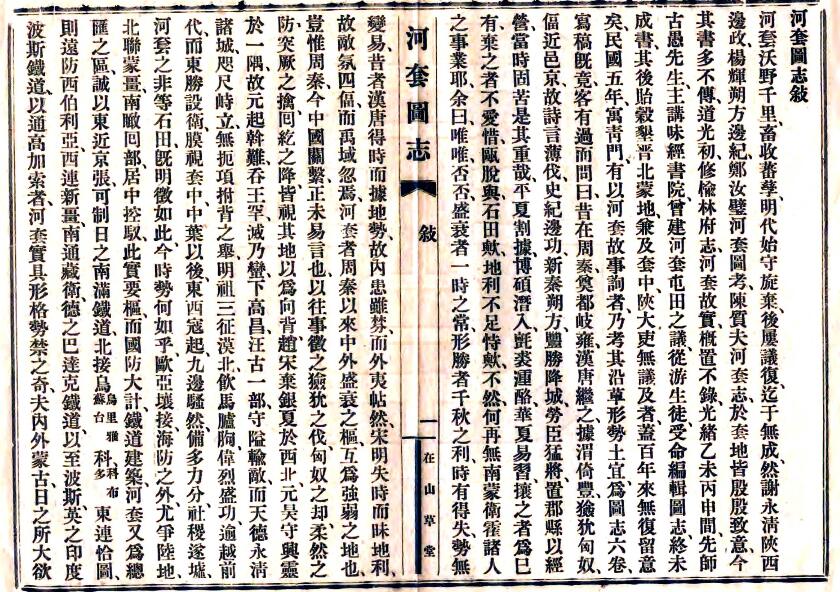 河套圖志敍
河套沃野千里、畜收蕃孳、明代始守旋棄、後屢議復、迄于無成、然謝永淸陝西
邊政、楊輝朔方邊紀、鄭汝璧河套圖考、陳質夫河套志、於套地皆殷殷致意、今
其書多不傳、道光初修楡林府志、河套故實、槪置不錄、光緒乙未丙申間、先師
古愚先生、主講味經書院、曾建河套屯田之議、從游生徒、受命編輯圖志、終未
成書、其後貽穀墾晋北蒙地、兼及套中、陝大吏無議及者、蓋百年來無復留意
矣、民國五年、寓靑門、有以河套故事詢者、乃考其沿革形勢土宜、爲圖志六卷、
寫稿旣竟、客有過而問曰、昔在周秦、奠都岐雍、漢唐繼之、據渭倚豐、獫狁匈奴、
偪近邑京、故詩言薄伐、史紀邊功、新秦朔方、豐勝降城、勞臣猛將、置郡縣以經
營、當時固苦是其重哉、平夏割據、博碩潛入、氈裘湩酪、華夏易習、攘之者爲巳
有、棄之者不愛惜、甌脫與、石田歟、地利不足恃歟、不然、何再無南蒙衛霍諸人
之事業耶、余曰、唯唯否否、盛衰者一時之常、形勝者千秋之利、時有得失、勢無
河套圖志
敍
一
在山草堂
變易、昔者漢唐得時而據地勢、故內患雖棼、而外夷帖然、宋明失時而昧地利、
故敵氛四偪、而禹域忽焉、河套者、周秦以來中外盛衰之樞、互爲強弱之地也、
豈惟周秦、今中國關繫、正未易言也、以往事徵之、獫狁之伐、匈奴之却、柔然之
防、突厥之擒、回紇之降、皆視其地以爲向背、趙宋棄銀夏於西北、元昊守興靈
於一隅、故元起斡難、呑王罕、滅乃蠻、下高昌、汪古一部、守隘輸敵、而天德永淸
諸城、咫尺峙立、無扼項拊背之舉、明祖三征漠北、飮馬臚朐、偉烈盛功、逾越前
代、而東勝設衛、膜視套中、中葉以後、東西寇起、九邊騷然、備多力分、社稷遂墟、
河套之非等石田、旣明徵如此、今時勢何如乎、歐亞壤接、海防之外、尤爭陸地、
北聯蒙畺、南瞰回部、居中控馭、此實要樞、而國防大計、鐵道建築、河套又爲總
匯之區、誠以東近京張、可制日之南滿鐵道、北接烏烏里雅蘇台科科布多東連恰圖、
則遠防西伯利亞、西連新畺、南通藏衛、德之巴達克鐵道、以至波斯、英之印度
波斯鐵道、以通高加索者、河套實具形格勢禁之奇、夫內外蒙古、日之所大欲